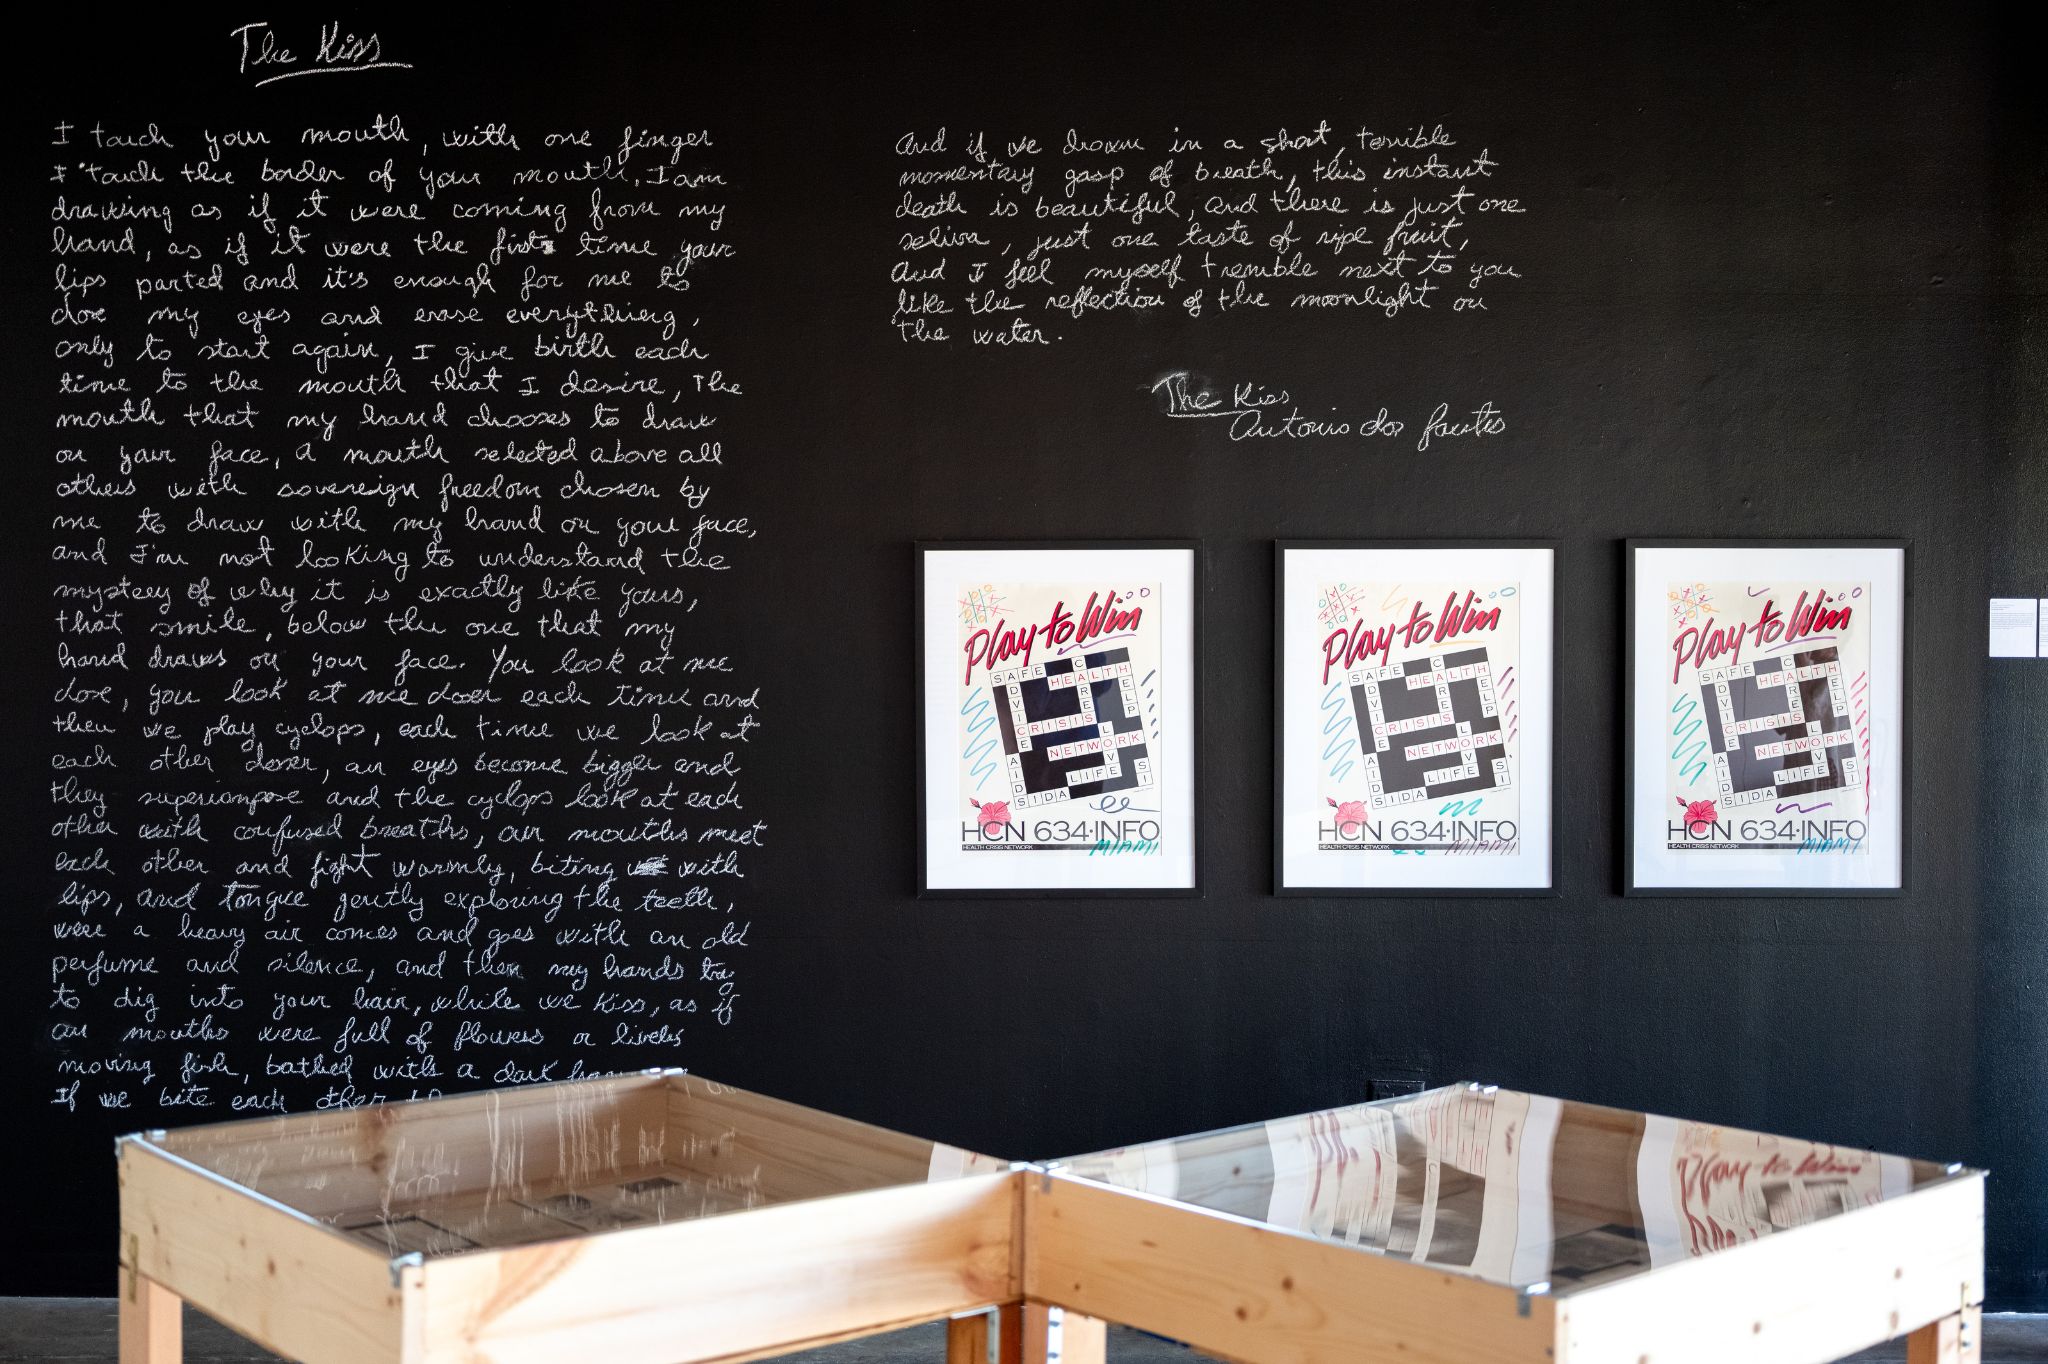 The Kiss
I touch your mouth, with one finger
I touch the border of your mouth, I am
drawing as if it were coming from my
hand, as if it were the first time your
lips parted and it's enough for me to
close my eyes and erase everything,
only to start again, I give birth each
time to the mouth that I desire, the
mouth that my hand chooses to draw
on your face, a mouth selected above all
others with sovereign freedom chosen by
me to draw with my hand on your face,
and I'm not looking to understand the
mystery of why it is exactly like yours,
that smile, below the one that my
hand draws on your face. You look at me
close, you look at me closer each time and
then we play cyclops, each time we look at
each other closer, our eyes become bigger and
they superimpose and the cyclops look at each
other with confused breaths, our mouths meet
each other and fight warmly, biting with
lips, and tongue gently exploring the teeth,
were a heavy air comes and goes with an old
perfume and silence, and then my hands try
to dig into your hair, while we kiss, as if
our mouths were full of flowers or
moving fish, bathed with a dark
If we bite each other
And if we drown in a short, terrible
momentary gasp of breath, this instant
death is beautiful, and there is just one
saliva, just one taste of ripe fruit,
And I feel myself tremble next to you
like the reflection of the moonlight on
the water.
The Kiss
Antonio dos
Play to Win
SAFE
HEALTH
ADVICE
CARESS
HELP
CRISIS
NETWORK
LOVE
AIDS
LIFE
SI
SIDA
HCN 634·INFO
HEALTH CRISIS NETWORK
MIAMI
Play to Win
SAFE
HEALTH
ADVICE
CARESS
HELP
CRISIS
NETWORK
LOVE
AIDS
LIFE
SI
SIDA
HCN 634·INFO
HEALTH CRISIS NETWORK
MIAMI
Play to Win
SAFE
HEALTH
ADVICE
CARESS
HELP
CRISIS
NETWORK
LOVE
AIDS
LIFE
SI
SIDA
HCN 634·INFO
HEALTH CRISIS NETWORK
MIAMI
Play to Win